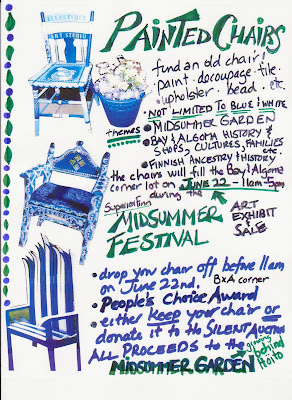 PAINTED CHAIRS
ART STUDIO
fund an old chair!
paint · decoupage · tile ·
upholster · bead · etc.
NOT LIMITED TO BLUE & WHITE
themes → • MIDSUMMER GARDEN
• BAY & ALGOMA HISTORY &
SHOPS, CULTURES, FAMILIES
etc.
• FINNISH ANCESTRY & HISTORY
the chairs will fill the Bay & Algoma
corner lot on JUNE 22 - 11am-5pm
during the
Superior Finn
MIDSUMMER
FESTIVAL
ART
EXHIBIT
&
SALE
• drop your chair off before 11am
on June 22nd. B&A corner
• People's Choice Award
• either keep your chair OR
donate it to the SILENT AUCTION
ALL PROCEEDS to the
MIDSUMMER GARDEN
behind
Hoito